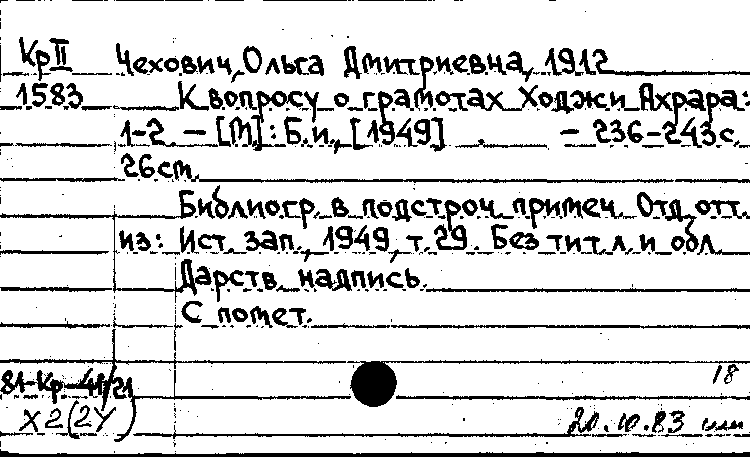 Кр II Чехович, Ольга Дмитриевна, 1912
1583 К вопросу о грамотах Ходжи Ахрара:
1-2. – [М]: Б.и., [1949]. – 236-243с.
26cm.
Библиогр. в подстроч. примеч. Отд. отт.
из: Ист. зап., 1949, т.29. Без тит. л. и обл.
Дарств. надпись.
С помет.
18
81-Кр-41/21
X2(2У)
20.10.83